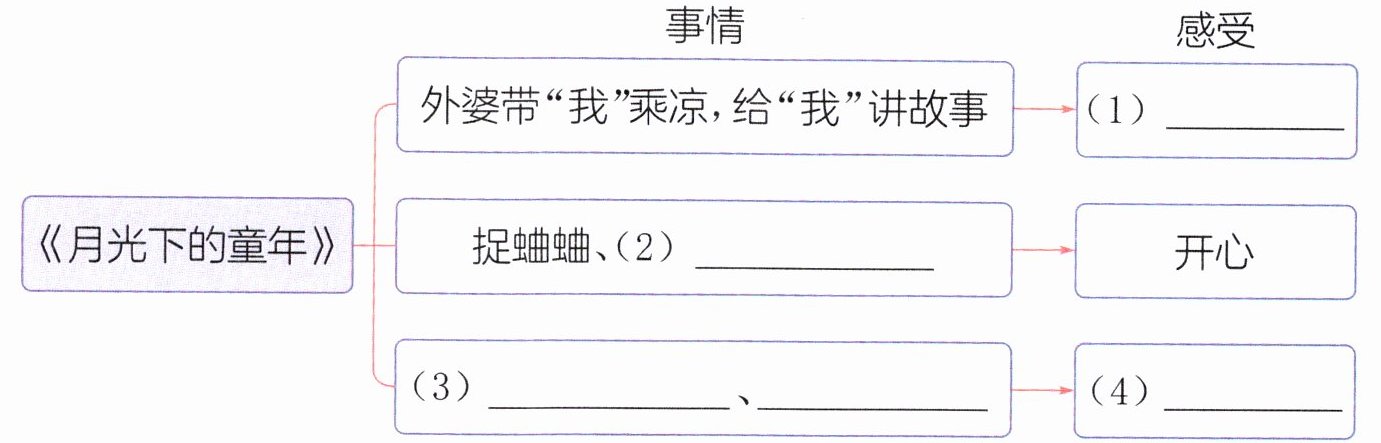 事情
感受
外婆带“我”乘凉,给“我”讲故事
(1)
《月光下的童年》
捉蛐蛐、(2)
开心
(3) 、
(4)